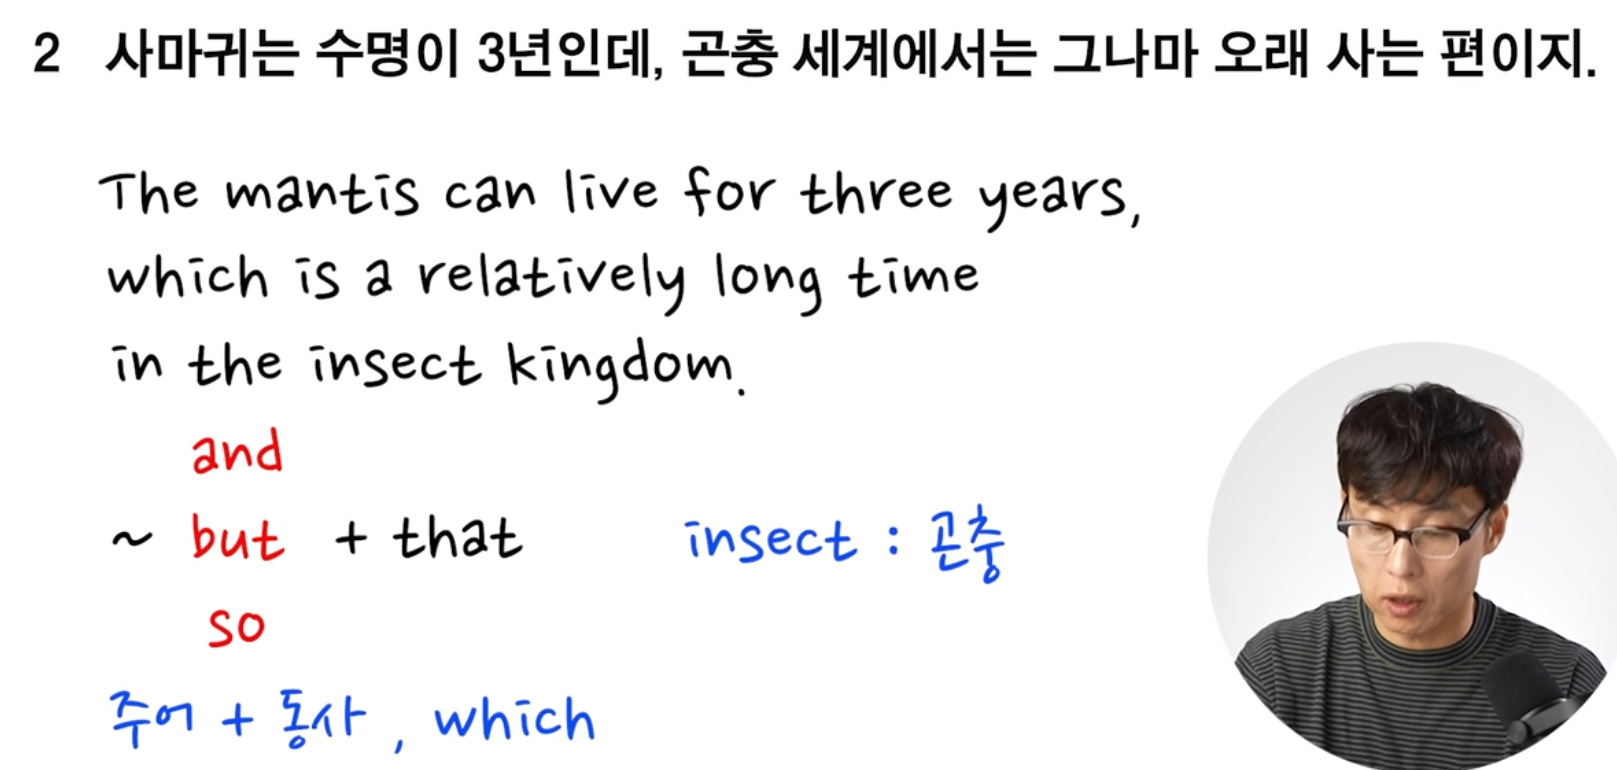 2 사마귀는 수명이 3년인데, 곤충 세계에서는 그나마 오래 사는 편이지.
The mantis can live for three years,
which is a relatively long time
in the insect kingdom.
and
~ but + that
so
insect : 곤충
주어 + 동사 , which